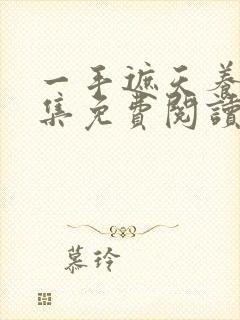 一手遮天養
集免費閱讀
慕玲